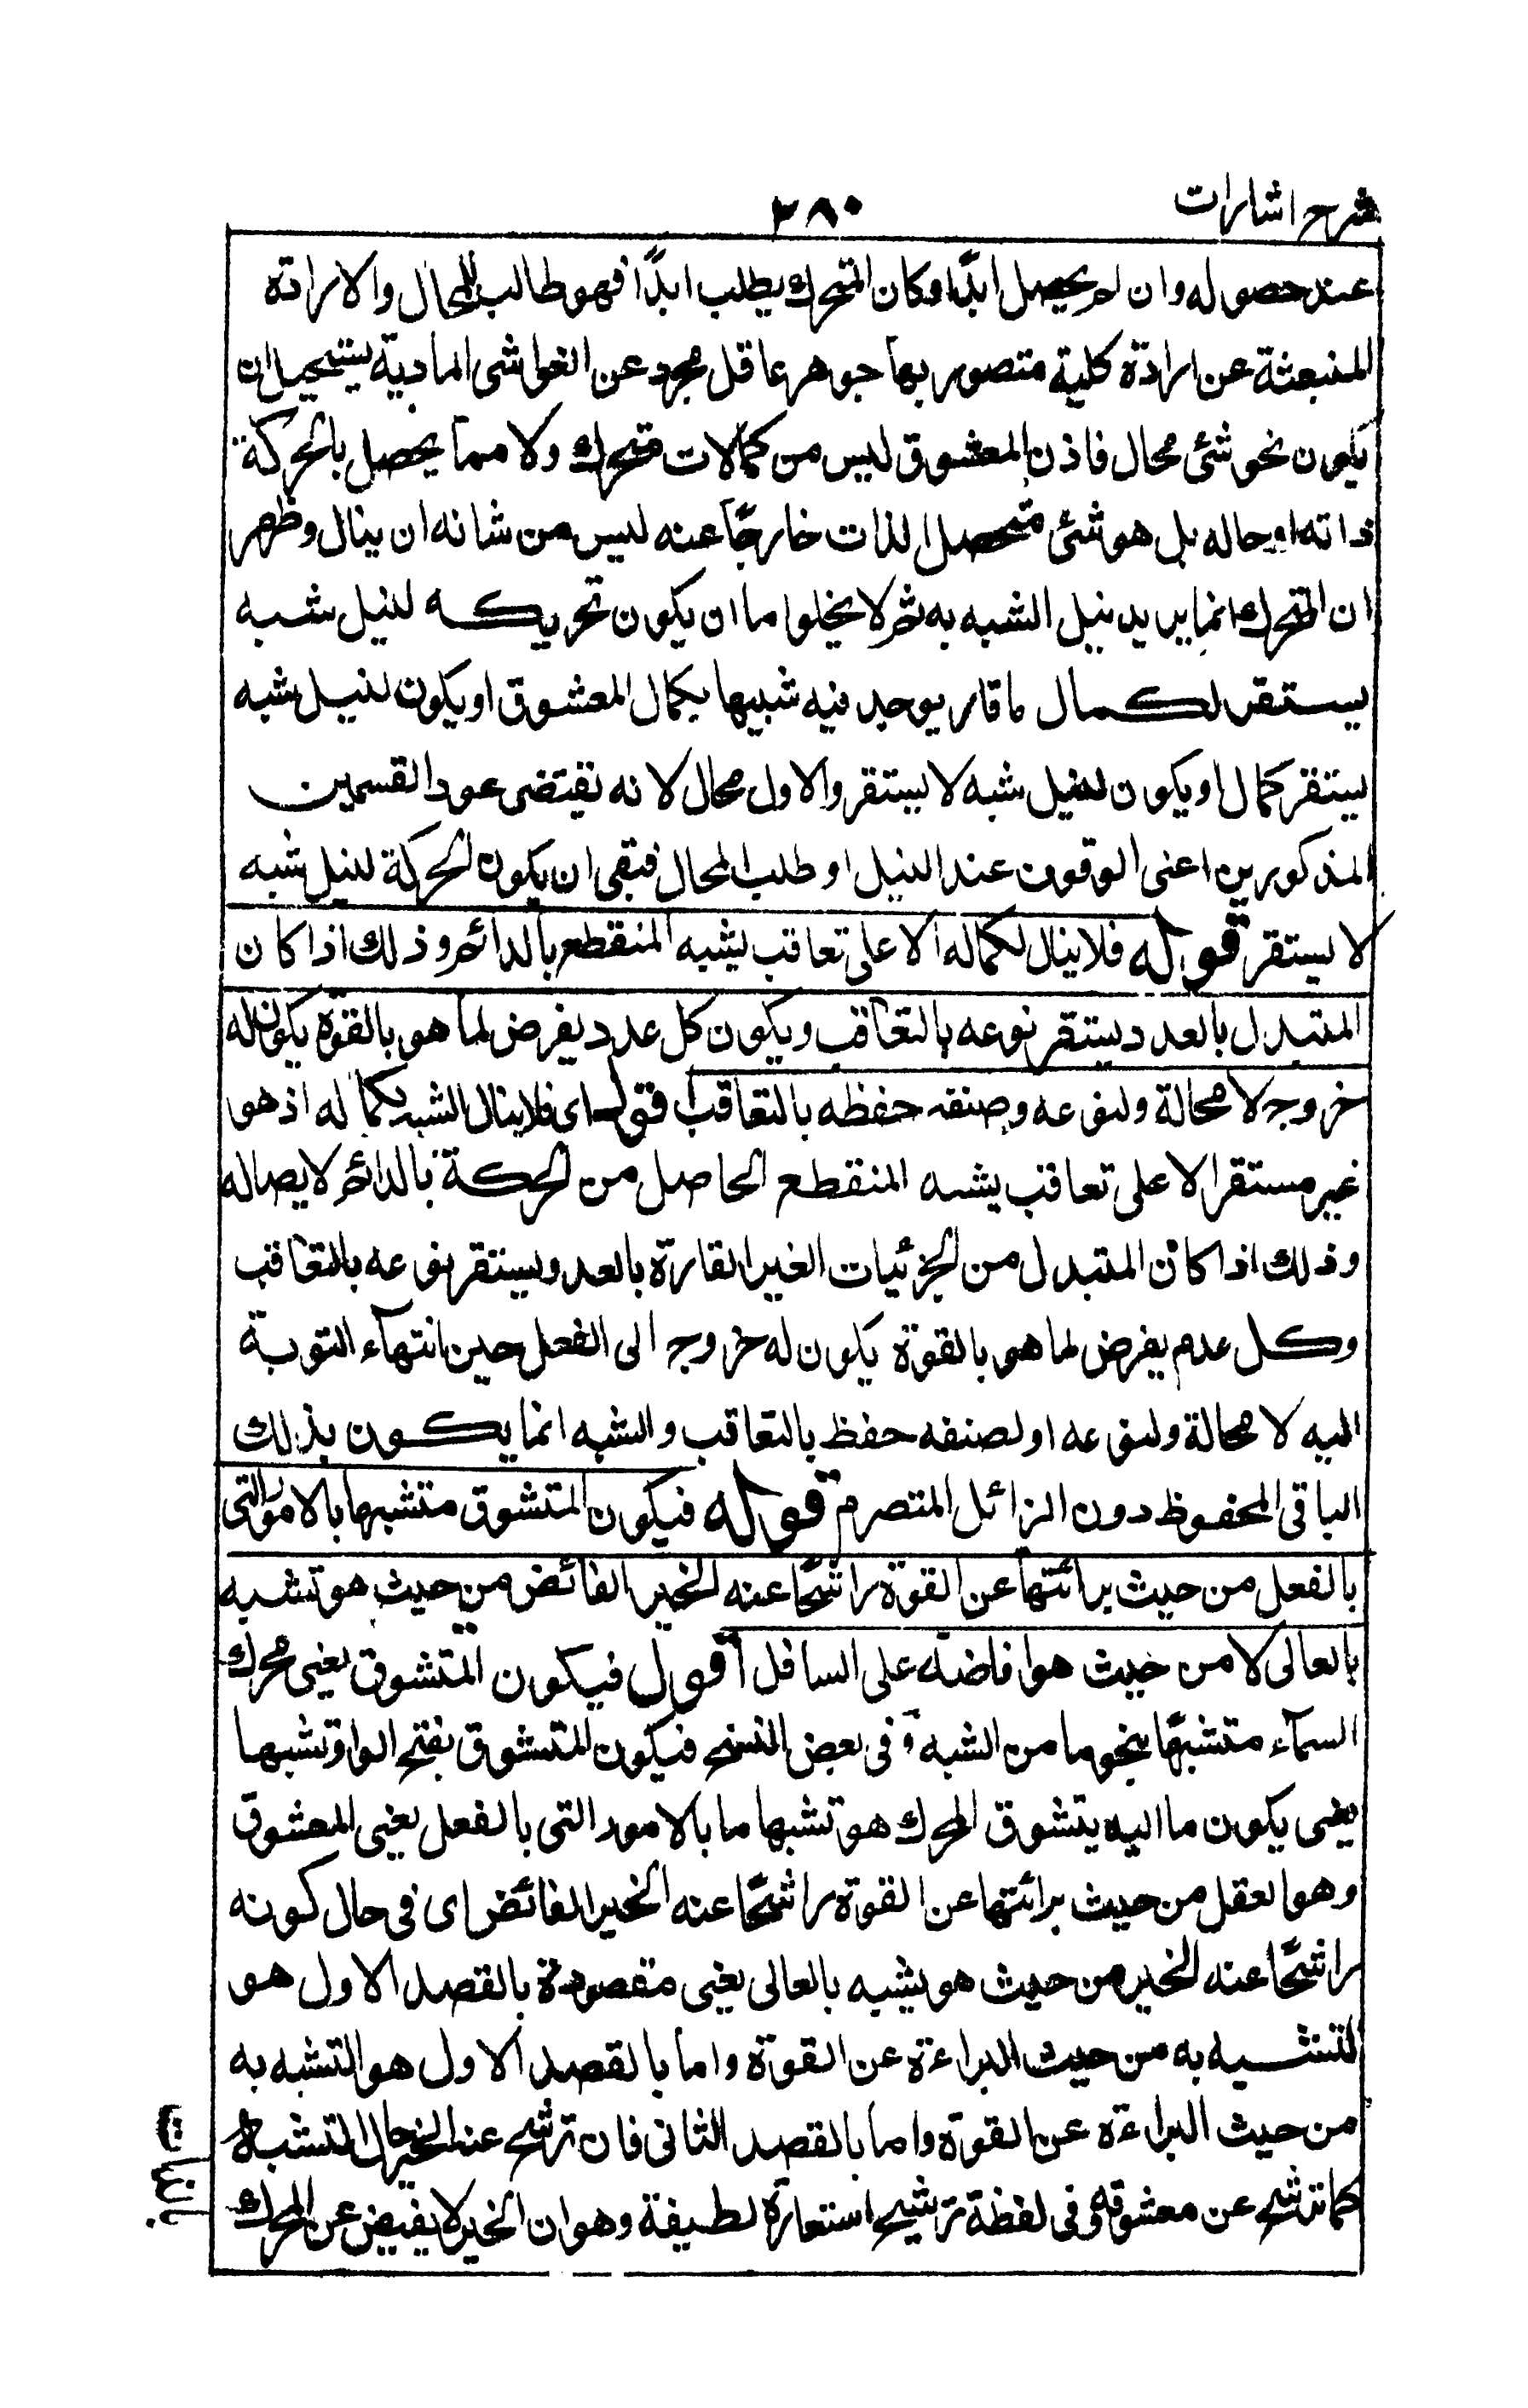 شرح اشارات
٣٨٠
عند حصوله وان لم يحصل ابدًا وكان المتحرك يطلب ابدًا فهو طالب للمحال والارادة
المنبعثة عن ارادة كلية متصور بها جوهر عاقل مجرد عن الغواشى المادية يستحيل ان
يكون نحو شئى محال فاذن المعشوق ليس من كمالات متحرك ولا مما يحصل بالحركة
ذاته او حاله بل هو شئى متحصل الذات خارجًا عنه ليس من شانه ان ينال وظهر
ان المتحرك انما يريد نيل الشبه به ثم لا يخلوا ما ان يكون تحريكه لنيل شبه
يستقر لكمال ما قار يوجد فيه شبيها بكمال المعشوق او يكون لنيل شبه
يستقر كمال او يكون لنيل شبه لا يستقر والاول محال لانه نقيتضى عود القسمين
المذكورين اعنى الوقوف عند النيل او طلب المحال فبقى ان يكون الحركة لنيل شبه
لا يستقر قوله فلا ينال لكماله الا على تعاقب يشبه المنقطع بالدائم وذلك اذا كان
المتبدل بالعدد يستقر نوعه بالتعاقب ويكون كل عدد يفرض لما هو بالقوة يكون له
خروج لا محالة ولنوعه وصنفه حفظه بالتعاقب اقول اى فلا ينال الشبه بكماله اذ هو
غير مستقر الا على تعاقب يشبه المنقطع الحاصل من الحركة بالدائم لايصاله
وذلك اذا كان المتبدل من الجزئيات الغير القارة بالعدد ويستقر نوعه بالتعاقب
وكل عدم يفرض لما هو بالقوة يكون له خروج الى الفعل حين انتهآء النوبة
اليه لا محالة ولنوعه او لصنفه حفظ بالتعاقب والشبه انما يكون بذلك
الباقى المحفوظ دون الزائل المتصرم قوله فيكون المتشوق متشبها بالامور التى
بالفعل من حيث برائتها عن القوة راشحًا عنه الخير الفائض من حيث هو تشبه
بالعالى لا من حيث هو افاضة على السافل اقول فيكون المتشوق يعنى محرك
السمآء متشبهًا بنحو ما من الشبه وفى بعض النسخ فيكون المتشوق بفتح الواو تشبها
يعنى يكون ما اليه يتشوق المحرك هو تشبها ما بالامور التى بالفعل يعنى المعشوق
وهو العقل من حيث برائتها عن القوة راشحًا عنه الخير الفائض اى فى حال كونه
راشحًا عنه الخير من حيث هو يشبه بالعالى يعنى مقصودة بالقصد الاول هو
التشبه به من حيث البراءة عن القوة واما بالقصد الاول هو التشبه به
من حيث البراءة عن القوة واما بالقصد الثانى فان ترشح عنه الخير حال التشبه
كما ترشح عن معشوقه وفى لفظة ترشيح استعارة لطيفة وهو ان الخير لا يفيض عن المحرك